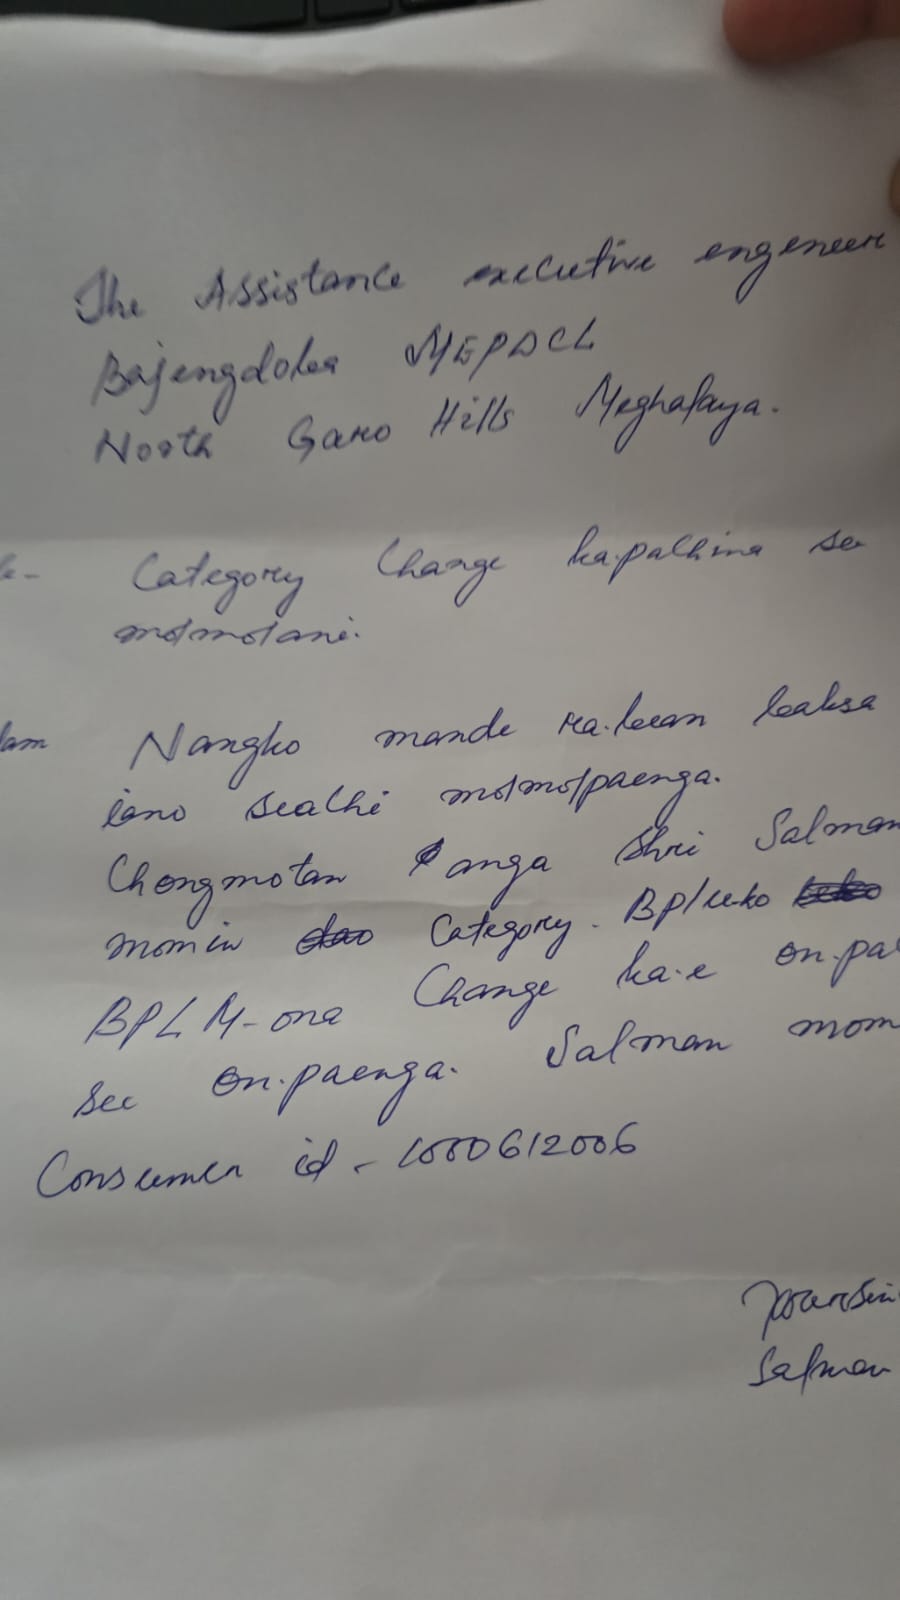 The Assistance executive engeneer
Bajengdoba MEPDCL
North Garo Hills Meghalaya.
Category Change ka.palchina su
molmolani.
Nangko mande ra.bian baksa
iano sualchi molmolpaenga.
Chongmotan anga Shri Salman
momin Category. Bpluko
BPL M-ona Change ka.e on.pa
su on.paenga. Salman mom
Consumer id - 1000612006
Salman